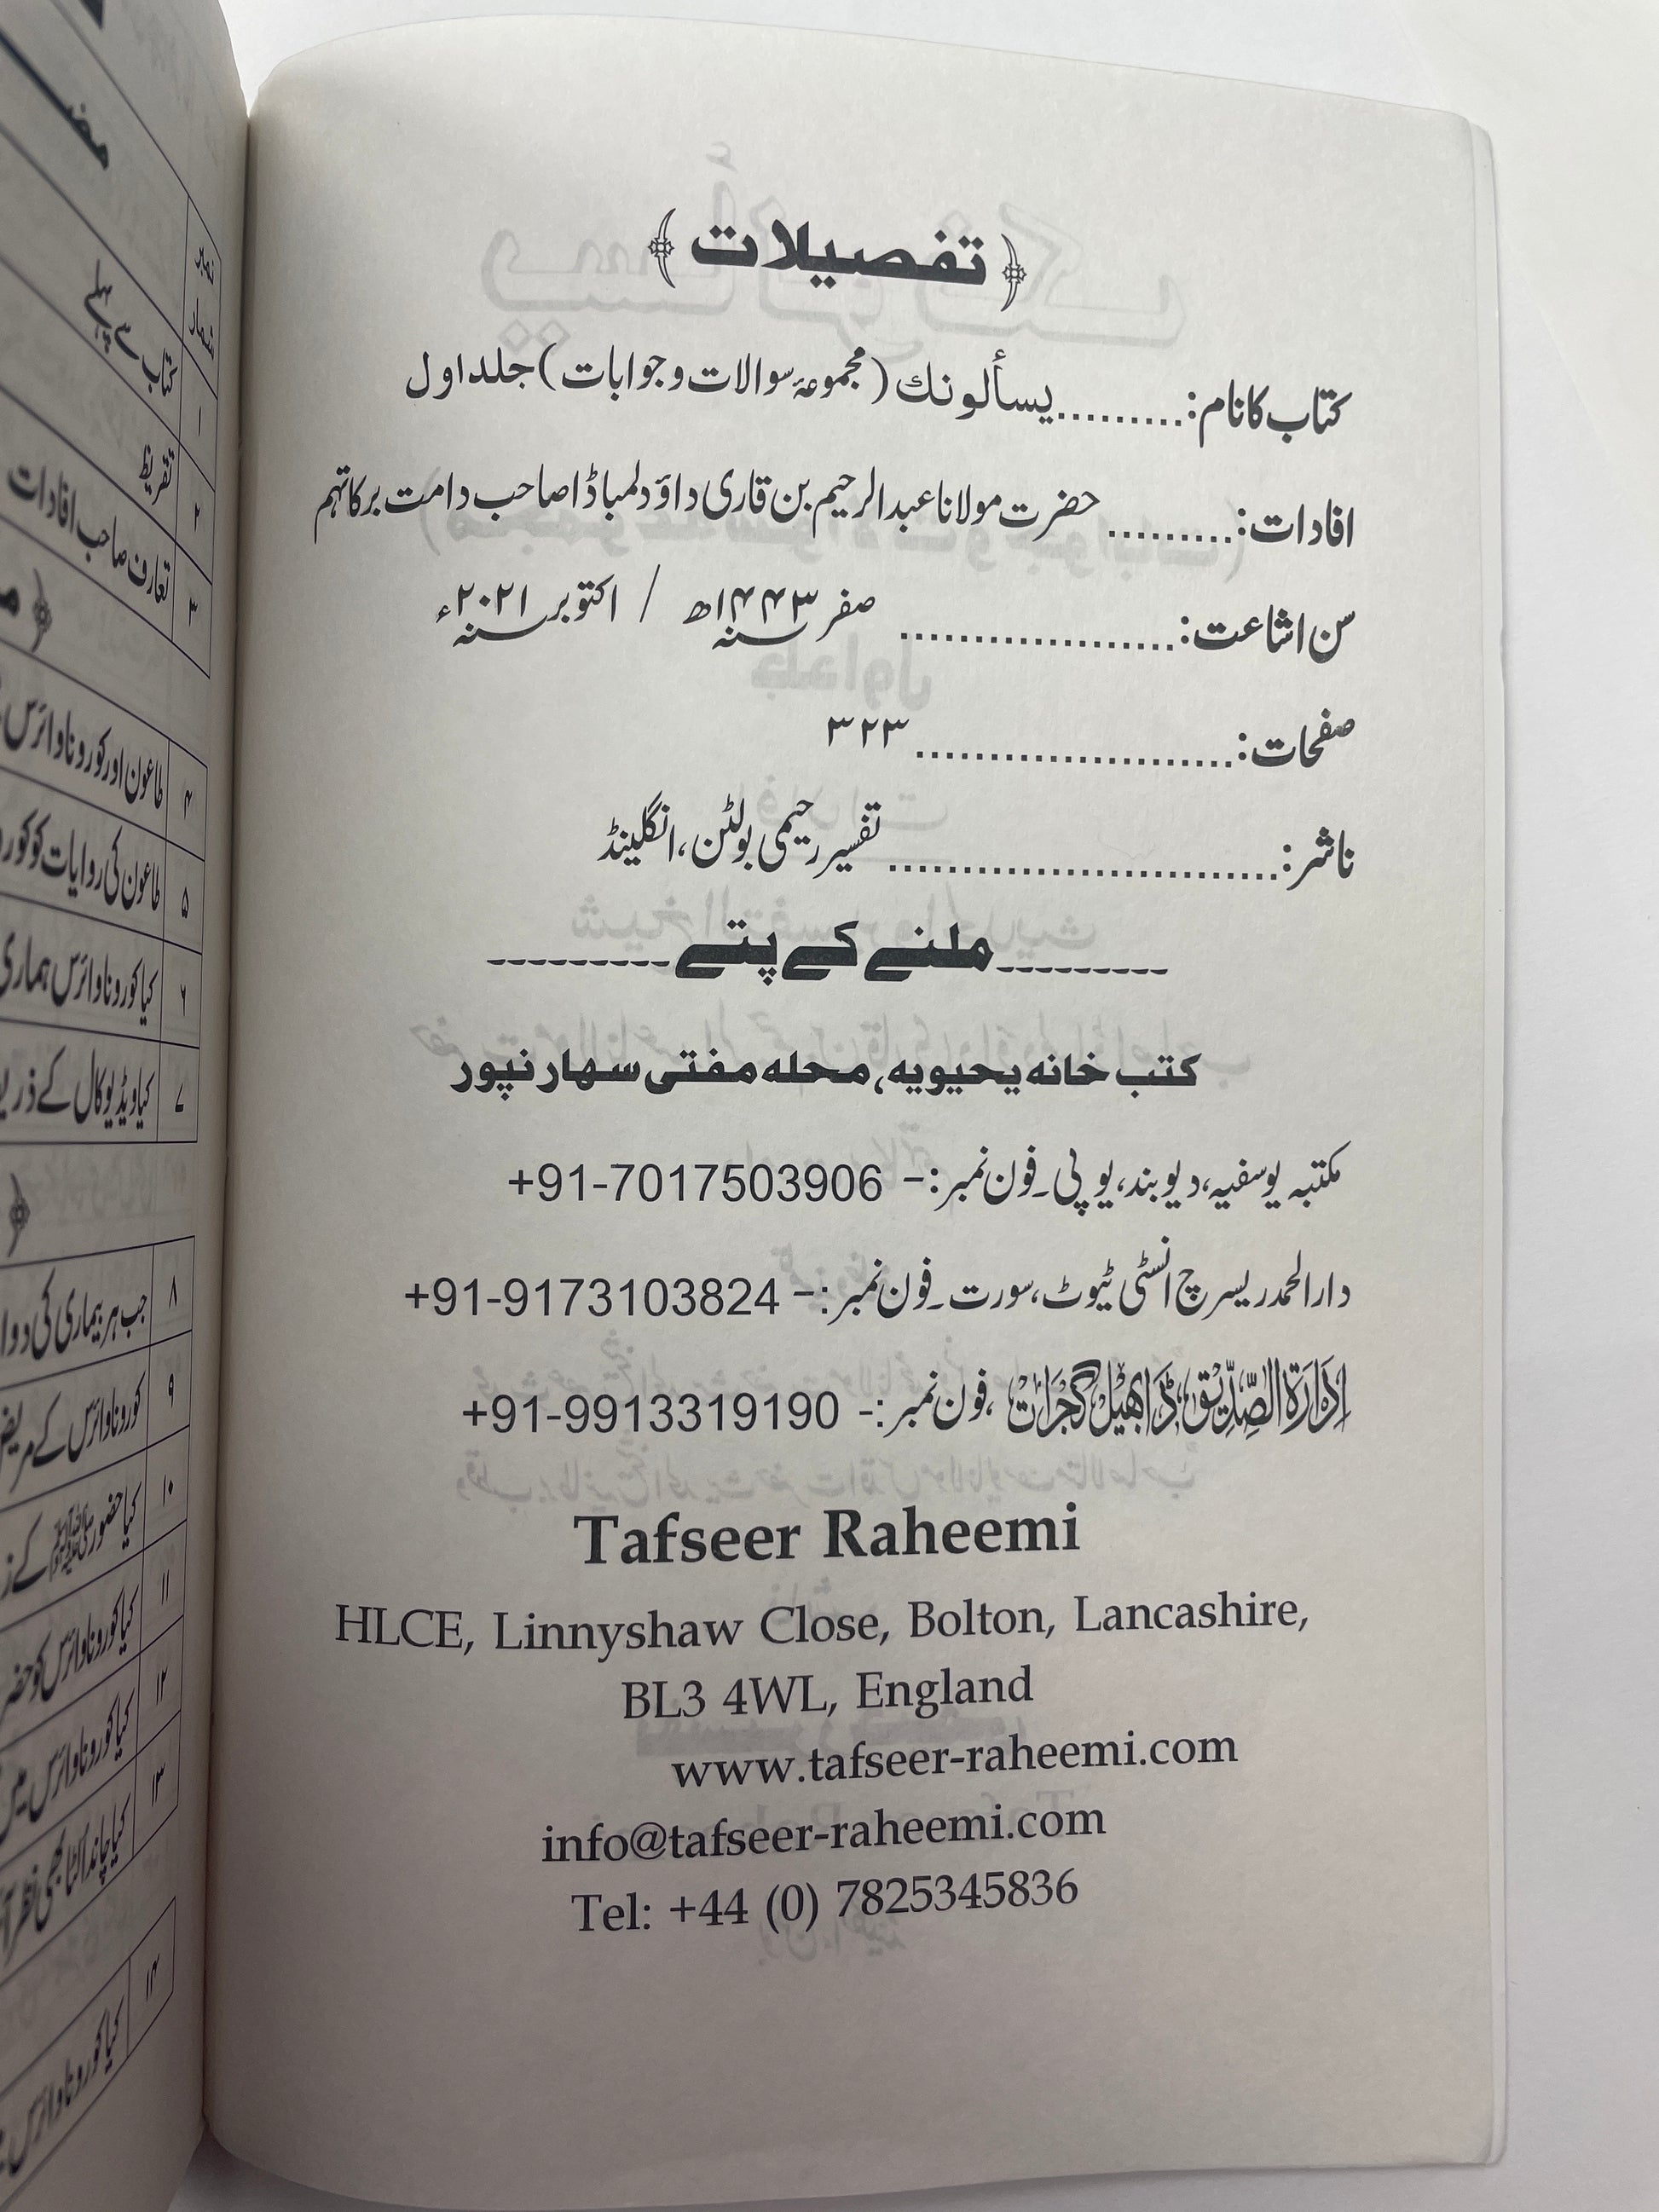 ﴿تفصیلات﴾
کتاب کا نام:.........یسألونك (مجموعۂ سوالات وجوابات) جلد اول
افادات:......... حضرت مولانا عبدالرحیم بن قاری داؤد لمباڈا صاحب دامت برکاتہم
سن اشاعت:................... صفر ۱۴۴۳ھ / اکتوبر ۲۰۲۱ء
صفحات:...................... ۳۲۳
ناشر:........................... تفسیر رحیمی بولٹن، انگلینڈ
ملنے کے پتے
کتب خانہ یحیویہ، محلہ مفتی سہارنپور
مکتبہ یوسفیہ، دیوبند، یوپی۔ فون نمبر:- +91-7017503906
دارالحمد ریسرچ انسٹی ٹیوٹ، سورت۔ فون نمبر:- +91-9173103824
اِدَارَۃُ الصِّدِّیق، ڈابھیل گجرات، فون نمبر:- +91-9913319190
Tafseer Raheemi
HLCE, Linnyshaw Close, Bolton, Lancashire,
BL3 4WL, England
www.tafseer-raheemi.com
info@tafseer-raheemi.com
Tel: +44 (0) 7825345836
نمبر شمار
۱ کتاب سے پہلے
۲ تقریظ
۳ تعارف صاحب افادات
۴ طاعون اور کورونا وائرس
۵ طاعون کی روایات کو
۶ کیا کورونا وائرس ہماری
۷ کیا ویڈیو کال کے
۸ جب ہر بیماری کی دوا
۹ کورونا وائرس کے
۱۰ کیا حضور ﷺ کے
۱۱ کیا کورونا وائرس کو
۱۲ کیا کورونا وائرس میں
۱۳ کیا چاند الٹا بھی نظر
۱۴ کیا کورونا وائرس